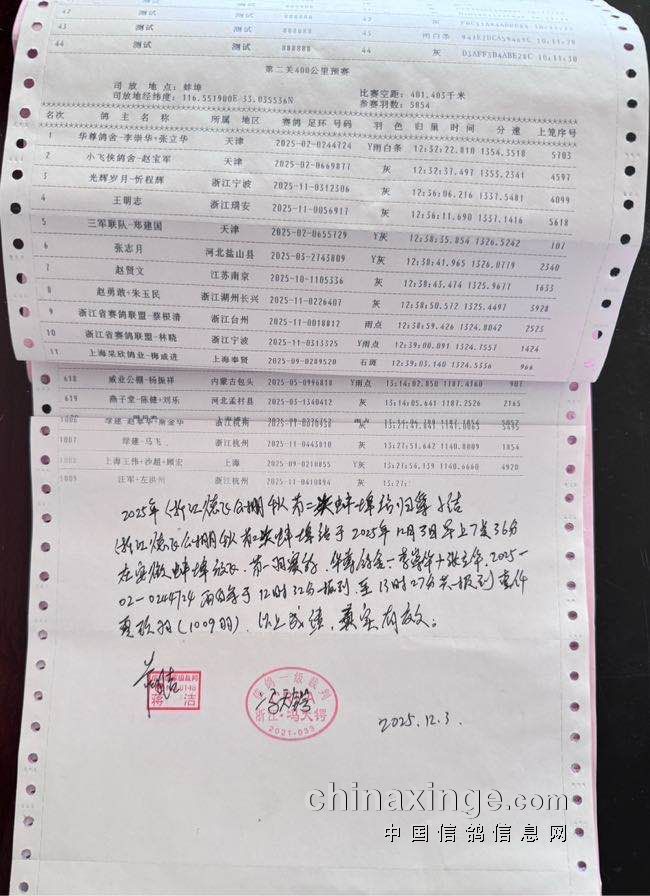 42 测试 000000 42
43 测试 000000 43 雨白条 10:11:20
44 测试 000000 44 灰 D3AFF3B4ABE28C 10:11:30
第二关400公里预赛
司放 地点: 蚌埠 比赛空距: 401.403千米
司放地经纬度: 116.551900E-33.035536N 参赛羽数: 5854
名次 鸽 主 名 称 所属 地区 赛鸽 足环 号码 羽 色 归巢 时间 分 速 上笼序号
1 华尊鸽舍-李崇华+张立华 天津 2025-02-0244724 Y雨白条 12:32:22.810 1354.3518 5703
2 小飞侠鸽舍-赵宝军 天津 2025-02-0669877 灰 12:32:37.497 1353.2341 4597
3 光辉岁月-忻程辉 浙江宁波 2025-11-0312306 灰 12:36:06.216 1337.5481 4099
4 王明志 浙江瑞安 2025-11-0056917 灰 12:36:11.690 1337.1416 5618
5 三军联队-郑建国 天津 2025-02-0655729 Y灰 12:38:35.854 1326.5242 107
6 张志月 河北盐山县 2025-03-2743809 Y灰 12:38:41.965 1326.0779 2340
7 赵贤文 江苏南京 2025-10-1105336 灰 12:38:43.474 1325.9677 1633
8 赵勇敢+朱玉民 浙江湖州长兴 2025-11-0226407 灰 12:38:50.572 1325.4497 3928
9 浙江省赛鸽联盟-蔡根清 浙江台州 2025-11-0018812 雨点 12:38:59.426 1324.8042 2525
10 浙江省赛鸽联盟-林晓 浙江宁波 2025-11-0313325 灰 12:39:00.091 1324.7557 1424
11 上海呆欣鸽业-梅咸进 上海奉贤 2025-09-0289520 石斑 12:39:03.140 1324.5336 966
618 威业公棚-杨振祥 内蒙古包头 2025-05-0996818 Y雨点 13:14:02.850 1187.4360 907
619 燕子堂-陈健+刘乐 河北孟村县 2025-03-1340412 灰 13:14:05.641 1187.2526 2165
1006 浙江杭州
1007 绿建-马飞 浙江杭州 2025-11-0443010 灰 13:27:51.642 1140.8009 1054
1008 上海王伟+沙超+顾宏 上海 2025-09-0210055 Y灰 13:27:54.139 1140.6660 4920
1009 汪军+左洪州 浙江杭州 2025-11-0410494 灰 13:27:
2025年浙江德飞公棚秋 蚌埠 归赛小结
浙江德飞公棚秋 蚌埠 于2025年12月3日早上7点36分
在安徽蚌埠放飞,第一羽赛鸽,华尊鸽舍-李崇华+张立华,2025-
02-0244724 雨白条于12时32分报到 至13时27分共报到
赛鸽 (1009羽),以上成绩,真实有效。
蒋洁
蒋洁
冯大锷
信鸽一级裁判
浙江·冯大锷
2021-033
2025.12.3.
chinaxinge.com
中国信鸽信息网